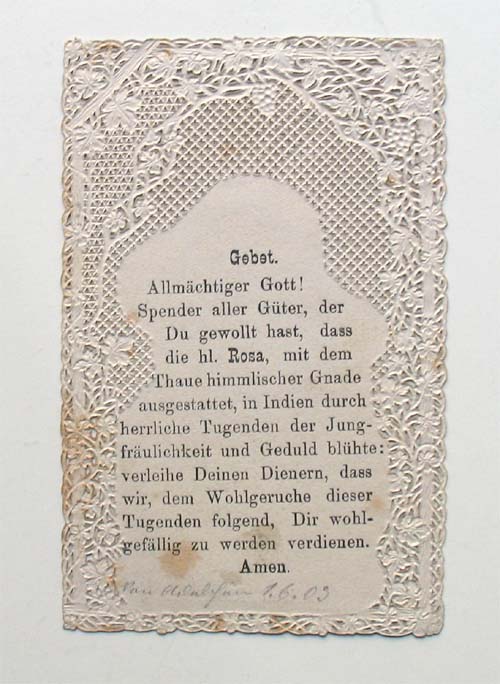 Gebet.
Allmächtiger Gott!
Spender aller Güter, der
Du gewollt hast, dass
die hl. Rosa, mit dem
Thaue himmlischer Gnade
ausgestattet, in Indien durch
herrliche Tugenden der Jung-
fräulichkeit und Geduld blühte:
verleihe Deinen Dienern, dass
wir, dem Wohlgeruche dieser
Tugenden folgend, Dir wohl-
gefällig zu werden verdienen.
Amen.
1.6.03